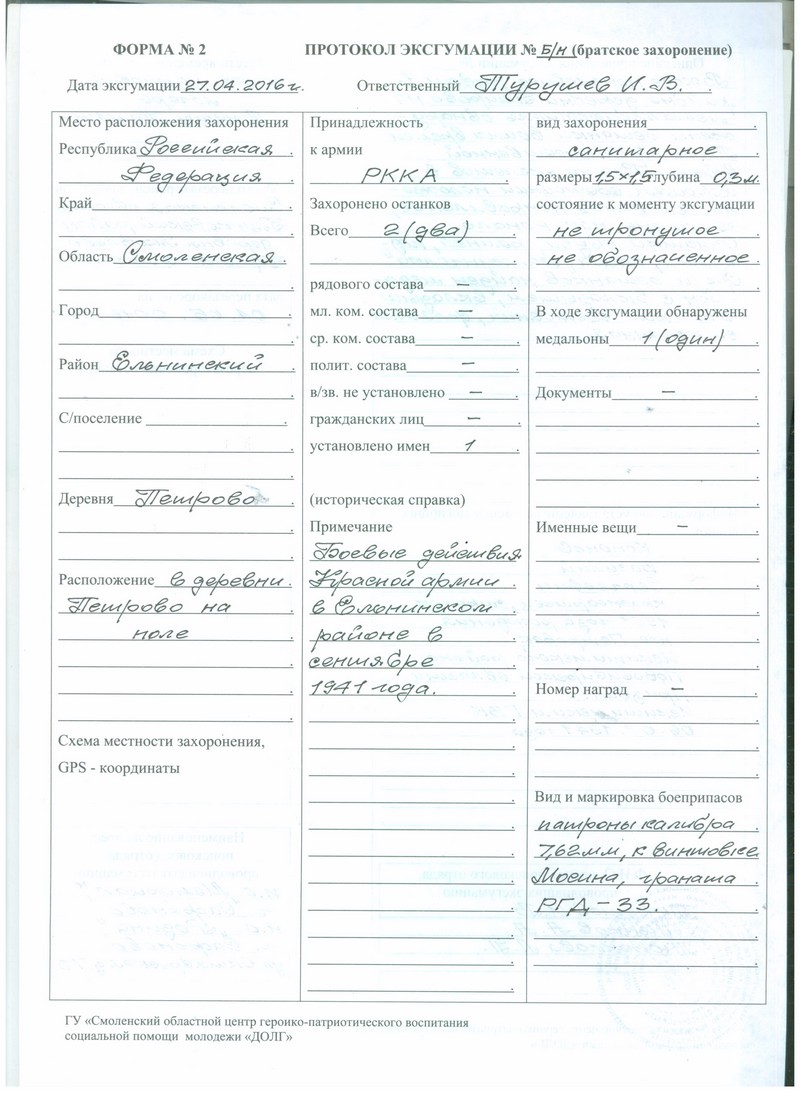 ФОРМА № 2
ПРОТОКОЛ ЭКСГУМАЦИИ № Б/н (братское захоронение)
Дата эксгумации 27.04.2016 г.
Ответственный Турушев И. В.
Место расположения захоронения
Республика Российская
Федерация
Край
Область Смоленская
Город
Район Ельнинский
С/поселение
Деревня Петрово
Расположение в деревни
Петрово на
поле
Схема местности захоронения,
GPS - координаты
Принадлежность
к армии
РККА
Захоронено останков
Всего 2 (два)
рядового состава —
мл. ком. состава —
ср. ком. состава —
полит. состава —
в/зв. не установлено —
гражданских лиц —
установлено имен 1
(историческая справка)
Примечание
Боевые действия
Красной армии
в Ельнинском
районе в
сентябре
1941 года.
вид захоронения
санитарное
размеры 1,5×1,5 глубина 0,3 м.
состояние к моменту эксгумации
не тронутое
не обозначенное
В ходе эксгумации обнаружены
медальоны 1 (один)
Документы —
Именные вещи —
Номер наград —
Вид и маркировка боеприпасов
патроны калибра
7,62 мм, к винтовке
Мосина, граната
РГД – 33.
ГУ «Смоленский областной центр героико-патриотического воспитания
социальной помощи молодежи «ДОЛГ»